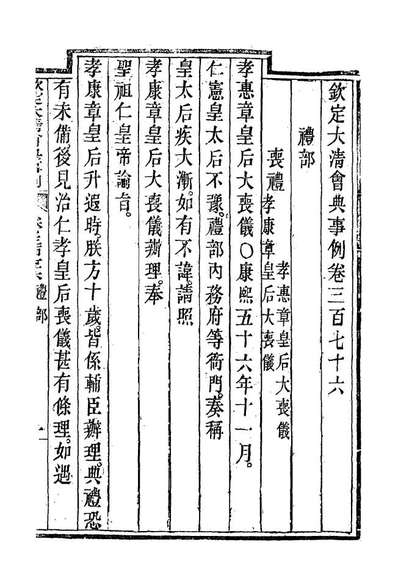 欽定大清會典事例卷三百七十六
禮部
喪禮 孝惠章皇后大喪儀
孝康章皇后大喪儀
孝惠章皇后大喪儀〇康熙五十六年十一月。
仁憲皇太后不豫。禮部內務府等衙門。奏稱
皇太后疾大漸。如有不諱。請照
孝康章皇后大喪儀辦理。奉
聖祖仁皇帝諭旨。
孝康章皇后升遐時。朕方十歲。皆係輔臣辦理。典禮恐
有未備。後見治仁孝皇后喪儀。甚有條理。如遇
禮部
一